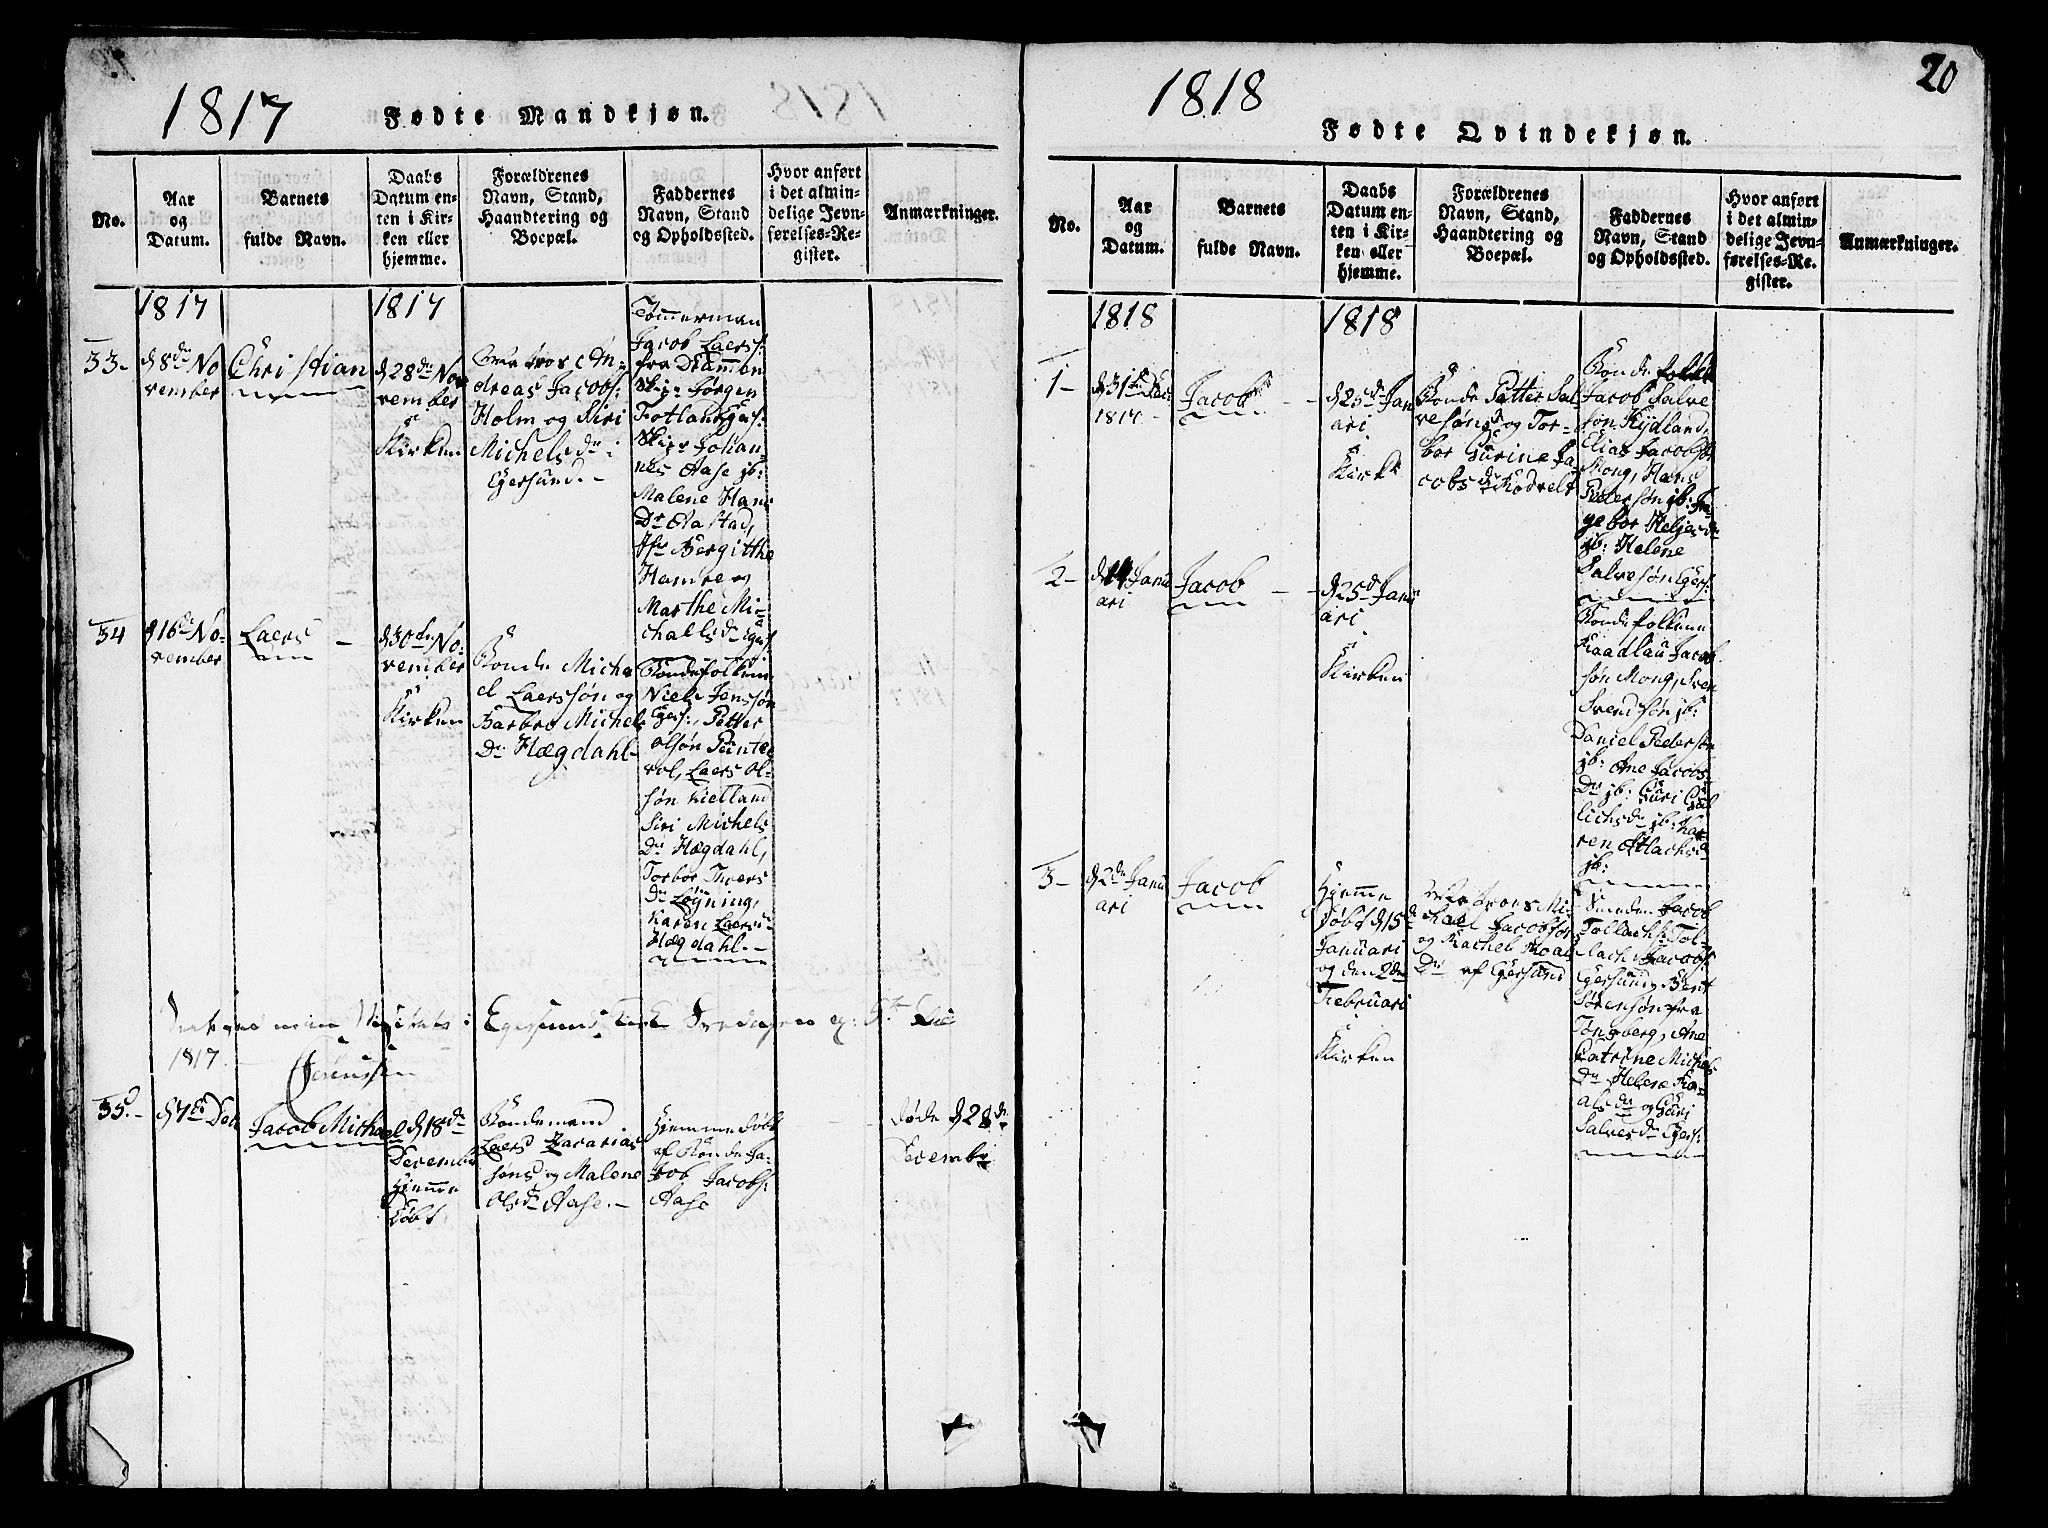 1817
Fødte Mandkjøn.
No.
Aar
og
Datum.
Barnets
fulde Navn.
Daabs
Datum en-
ten i Kir-
ken eller
hjemme.
Forældrenes
Navn, Stand,
Haandtering og
Boepæl.
Faddernes
Navn, Stand
og Opholdssted.
Hvor anført
i det almin-
delige Jevn-
førelses-Re-
gister.
Anmærkninger.
1817
1817
33-
d 8de No
vember
Christian
d 28de No
vember
i
Kirken
An-
dreas Jacobs:
Holm og Siri
Michelsdr i
Egersund.-
Tømmerman
Jacob Laers:
fra Drammen
Jørgen
Johan-
nes Aase ib:
Malene Hans
Dr Aastad,
Jfr Bergitthe
Hamre og
Marthe Mi-
chaelsdr
34
d 16de No-
vember
Laers
d 30te No-
vember
i
Kirken
Bonde Micha
el Laerssøn og
Barbro Michels
Dr Hægdahl-
Bondefolkene
Niels Jenssøn
Egers:, Petter
olsøn
vol, Laers ol-
søn Kielland
Siri Michels
Dr Hægdahl,
Torbor Thoers
Dr Løyning,
Karen Laers-
Hægdahl.-
i Egersund
1817.
Sørenssen
35.-
d 7de Dec
Jacob Michael
d 18de
December
Hjemme
Døbt
Bondemand
Laers Zacarias
søn og Malene
olsdr Aase.-
Hjemme Døbt
af Bonde Ja-
kob Jacobs:
Aase
Døde d 28de
Decembr
1818
20
Fødte Qvindekjøn.
No.
Aar
og
Datum.
Barnets
fulde Navn.
Daabs
Datum en-
ten i Kir-
ken eller
hjemme.
Forældrenes
Navn, Stand,
Haandtering og
Boepæl.
Faddernes
Navn, Stand
og Opholdssted.
Hvor anført
i det almin-
delige Jevn-
førelses-Re-
gister.
Anmærkninger.
1818
1818
1-
d 31te Dec:
1817-
Jacob
d 25de Janu
ari
i
Kirk
Bonde Petter Sal-
vesøn og Tor-
bor Gurine Ja-
cobsdr Rodvelt
Bondefolkene
Jacob Salve
søn Kydland,
Elias Jacobsøn
Mong, Hans
Pedersøn ib: In-
gebor Helgesdr
ib: Helene
Salvesøn Egers:
2-
Janu
ari
Jacob
d 25de Janu
ari
i
Kirken
Bondefolkene
Jacob
søn Mong, Sven
Svendsøn ib:
Daniel Pedersøn
ib: Ane Jacobs
Dr ib: Guri
lichsdr ib: Ka-
ren Atlachsdr
ib:
3-
d 2de Janu
ari
Jacob
Hjemme
Døbt d 15de
Januari
og den 2den
Februari
i
Kirken
Mi-
chael Jacobsøn
og Rachel Roals
Dr af Egersund
Smeden Jacob
Tollachs: Tol-
lach Jacobs:
Egersund, Bent
Sørensøn fra
Tongverg, Ane
Catrine Michels
Dr Helene Ro-
alsdr og Guri
Salvesdr Egers: